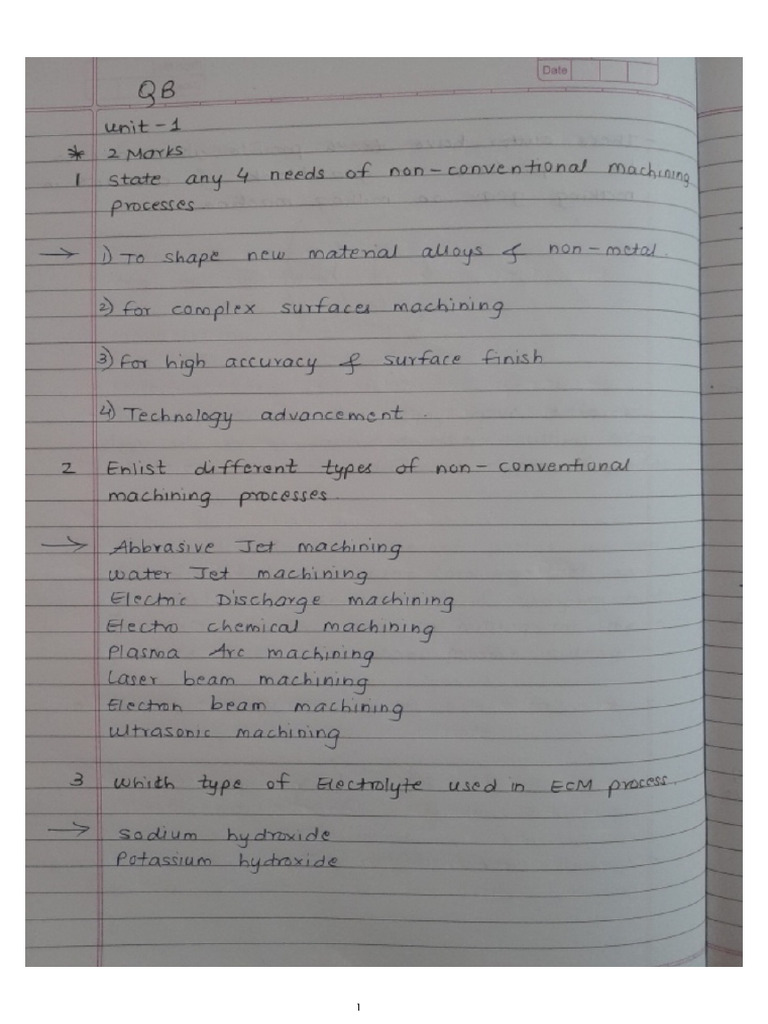 Date
QB
unit-1
* 2 Marks
1 State any 4 needs of non-conventional machining
processes
→ 1) To shape new material alloys & non-metal.
2) for complex surfaces machining
3) For high accuracy & surface finish
4) Technology advancement.
2 Enlist different types of non-conventional
machining processes.
→ Abbrasive Jet machining
water Jet machining
Electric Discharge machining
Electro chemical machining
Plasma Arc machining
Laser beam machining
Electron beam machining
Ultrasonic machining
3 Which type of Electrolyte used in ECM process.
→ Sodium hydroxide
Potassium hydroxide
1